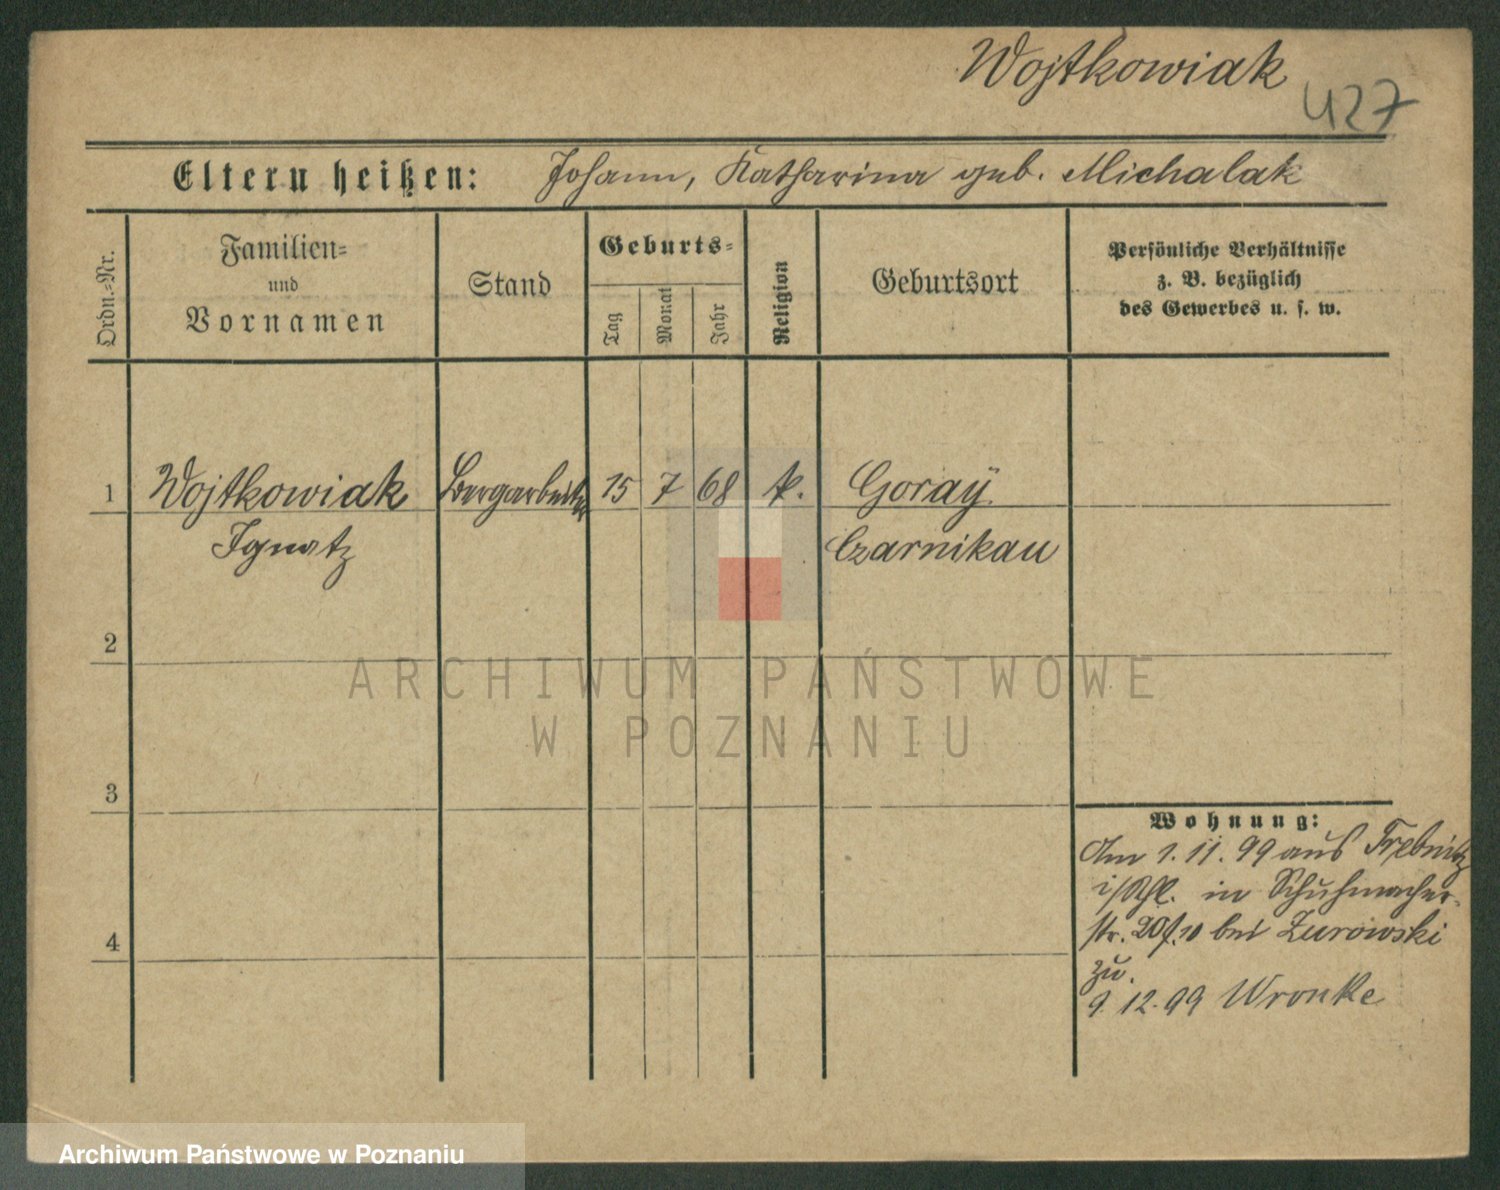 Wojtkowiak
427
Eltern heißen: Johann, Katharina geb. Michalak
Ordn.-Nr.
Familien-
und
Vornamen
Stand
Geburts-
Tag
Monat
Jahr
Religion
Geburtsort
Persönliche Verhältnisse
z. B. bezüglich
des Gewerbes u. s. w.
1 Wojtkowiak Bergarbeiter 15 7 68 k. Goray
Ignatz Czarnikau
2
3
4
Wohnung:
Am 1.11.99 aus Trebnitz
in Schuhmacher-
str. 20 bei Zurowski
zu.
9.12.99 Wronke
ARCHIWUM PAŃSTWOWE
W POZNANIU
Archiwum Państwowe w Poznaniu